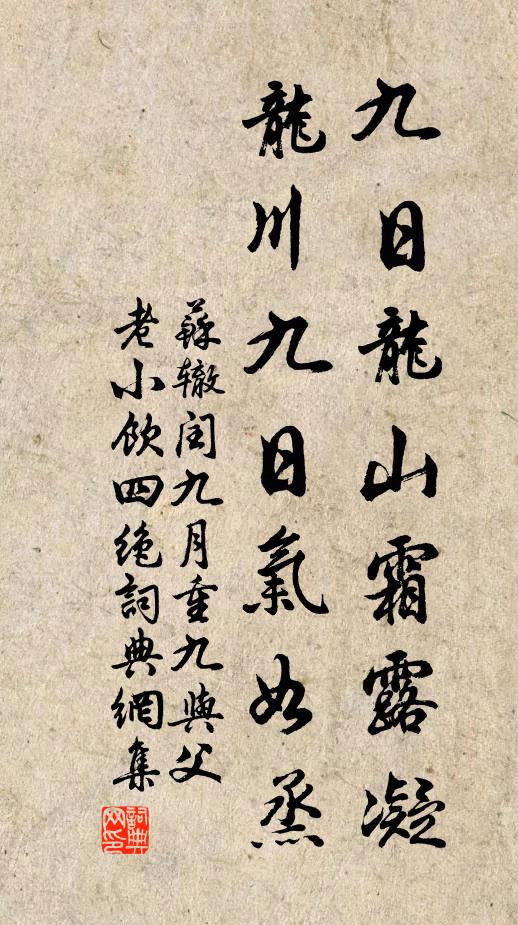 九日龍山霜露凝
龍川九日氣如蒸
蘇辙閏九月重九與父
老小飲四絶詞典網集
詞典网印